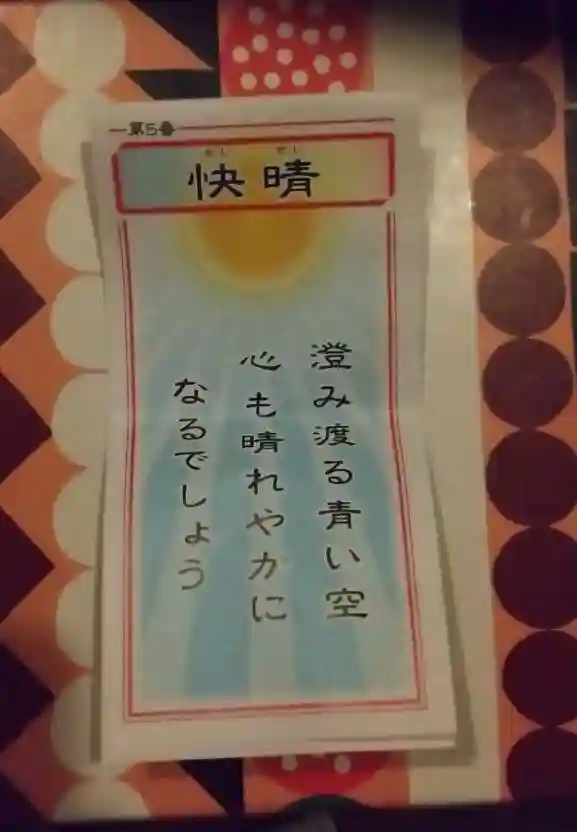 第5番
快晴
澄み渡る青い空
心も晴れやかに
なるでしょう